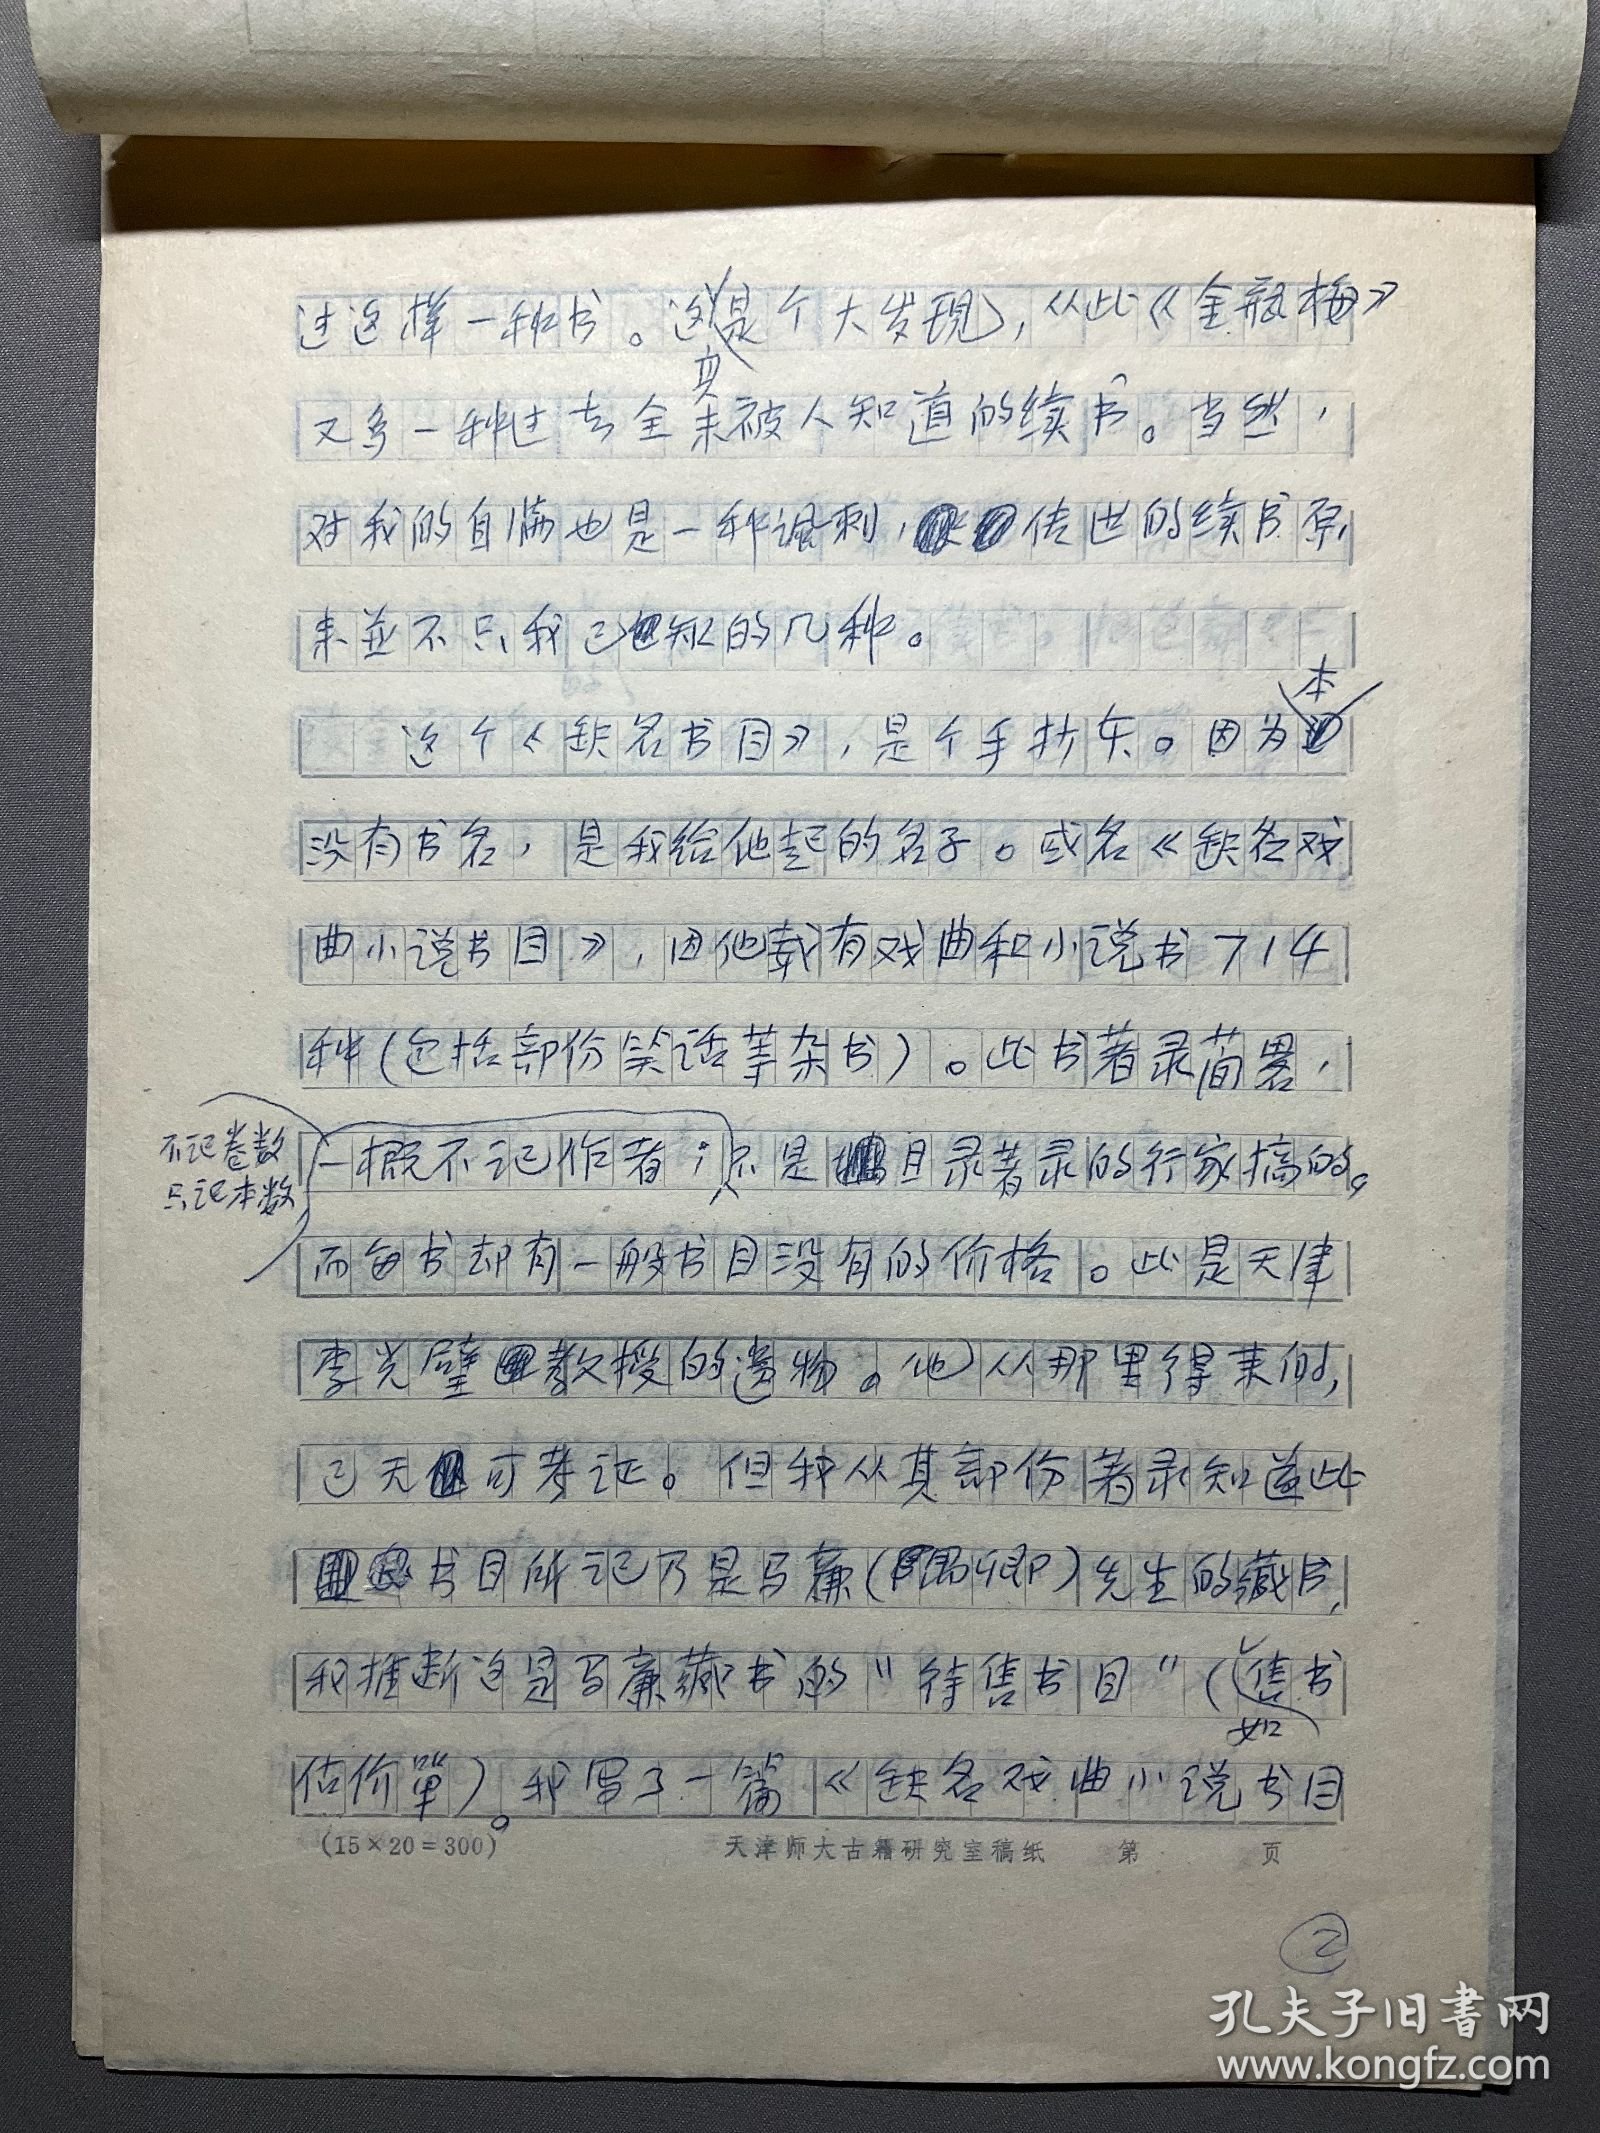 过这样一种书。这真是个大发现，从此《金瓶梅》
又多一种过去全未被人知道的续书。当然，
对我的自满也是一种讽刺，传世的续书原
来並不只我已知的几种。
这个《缺名书目》，是个手抄本。因为本
没有书名，是我给他起的名子。或名《缺名戏
曲小说书目》，因他载有戏曲和小说书714
种（包括部份笑话等杂书）。此书著录简畧，
一概不记作者；不记卷数
只记本数，不是目录著录的行家搞的。
而每书却有一般书目没有的价格。此是天津
李光璧教授的遗物。他从那里得来的，
已无可考证。但我从其部份著录知道此
书目所记乃是马廉（隅卿）先生的藏书，
我推断这是马廉藏书的"待售书目"（如售书
估价單）。我写了一篇《缺名戏曲小说书目
(15×20=300) 天津师大古籍研究室稿纸 第 页
2
孔夫子旧書网
www.kongfz.com